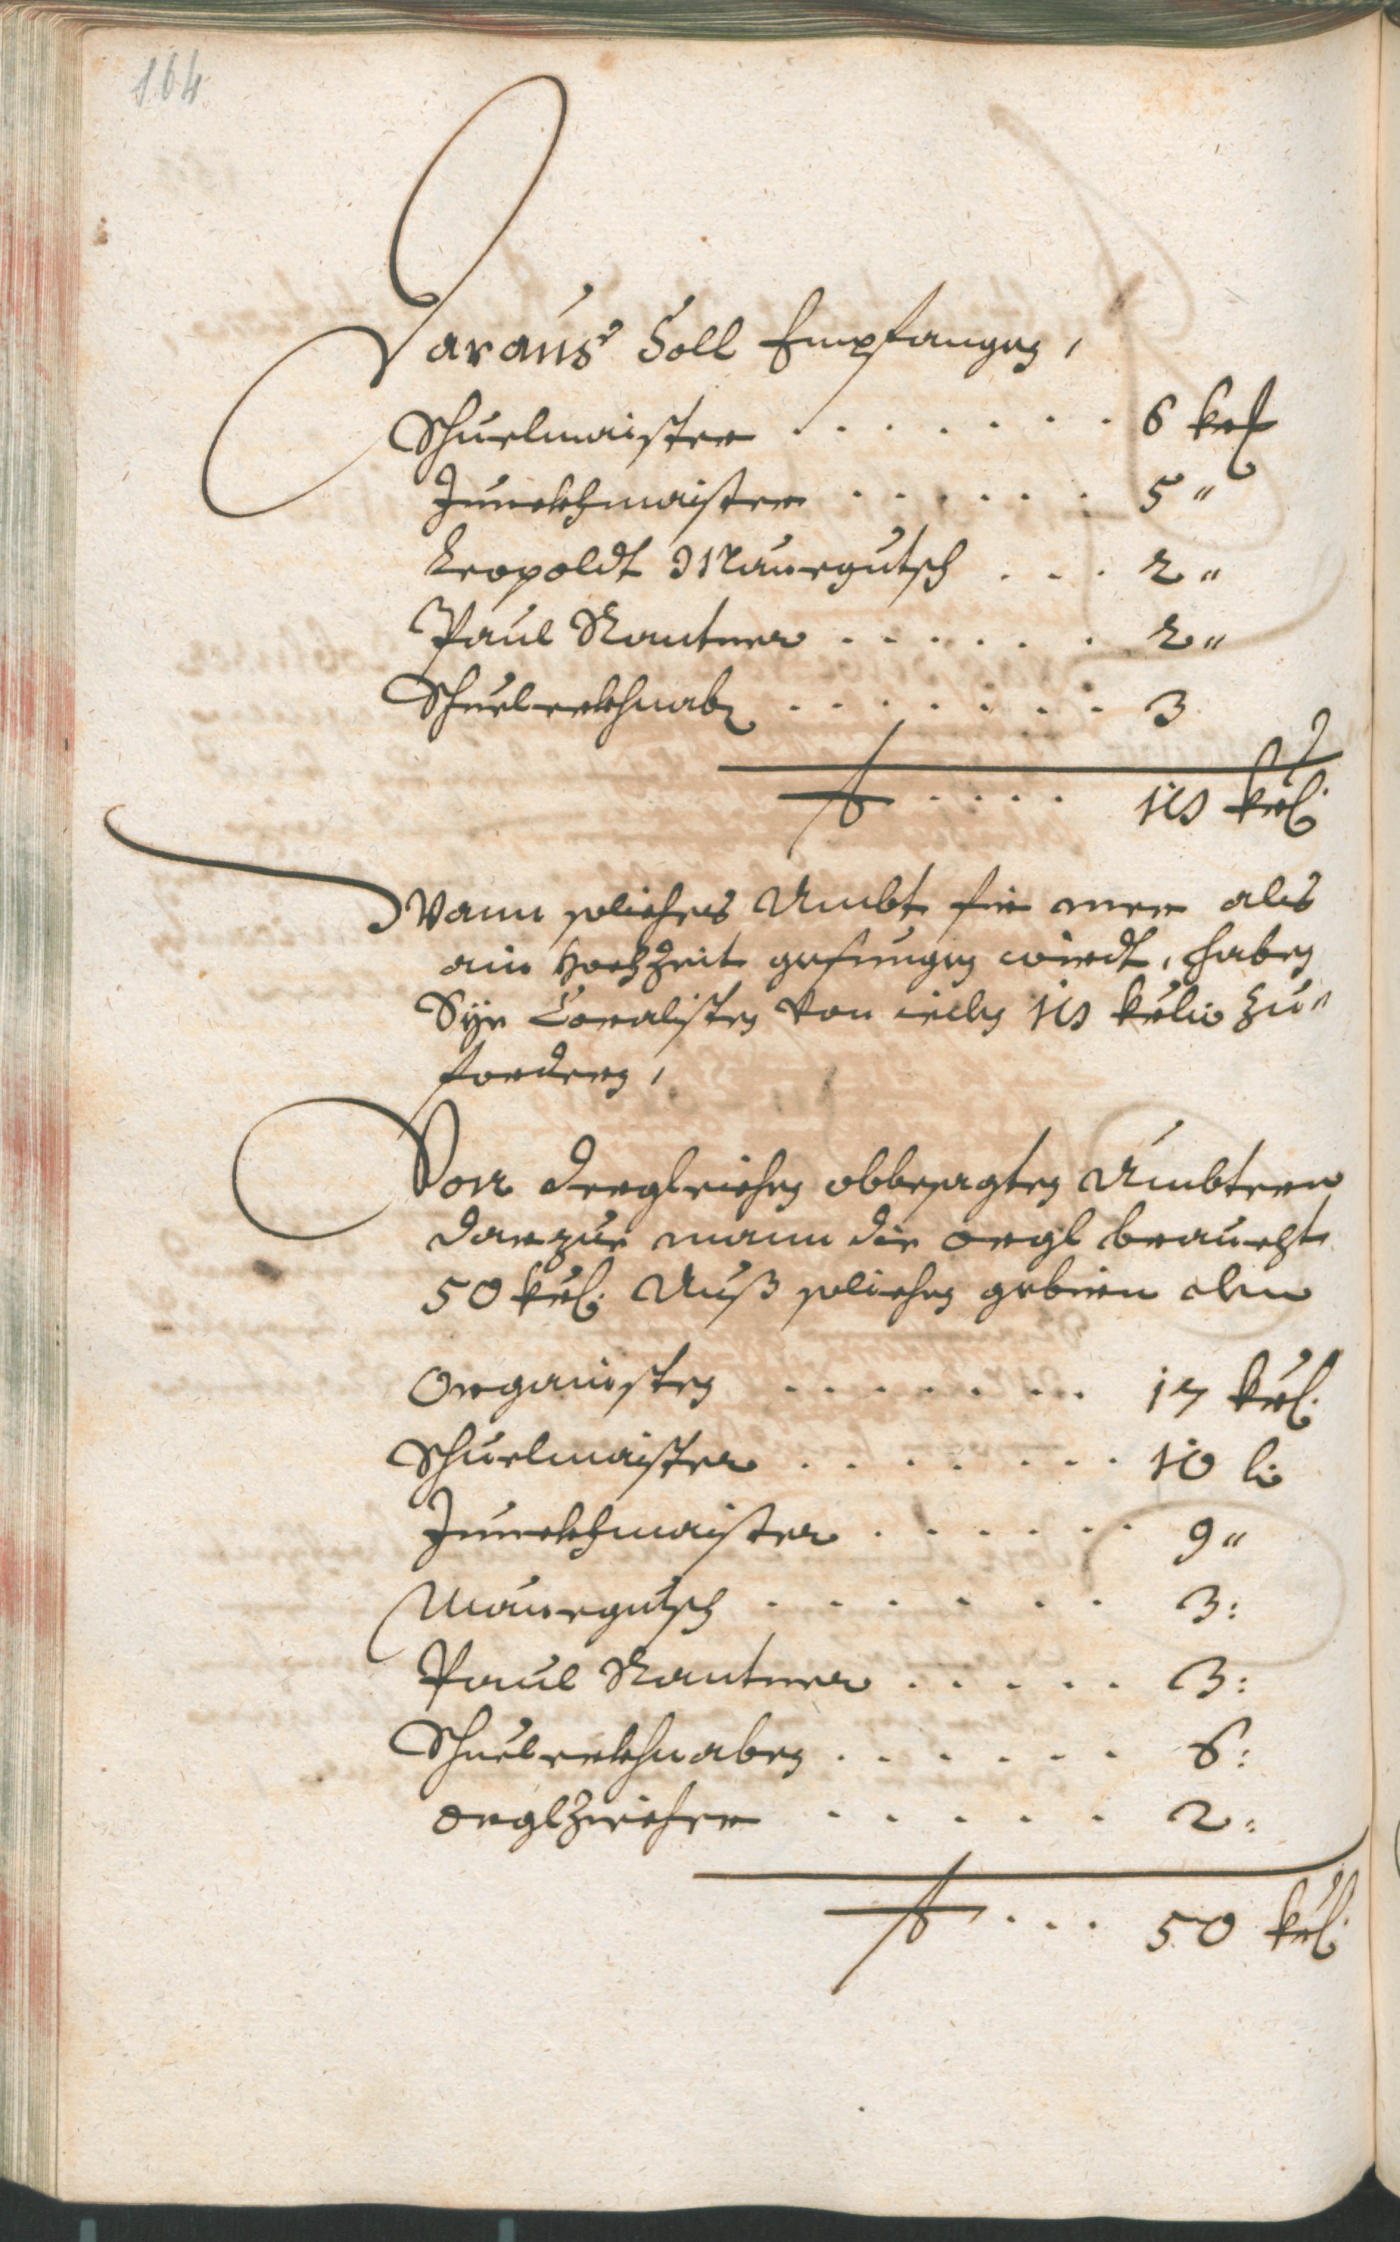 164
Daraus Soll Empfangen,
Schuelmaister . . . . . . . 6 krl
Junckhmaister . . . . . . 5 "
Leopoldt Maurgutsch . . . 2 "
Paul Kautner . . . . . . 2 "
Schuelerkhnab . . . . . . . 3
. . . . 18 krl.
Wann solliches Ambt für mer als
ain Hochzeit gesungen wirdt, haben
Sÿe Coralisten von ieden 18 krl. zu
fordern,
Von dergleichen obbesagten Ämbtern
darzue mann die orgl braucht
50 krl. Auß solichen gebirn den
Organisten . . . . . . . 17 krl.
Schuelmaister . . . . . . . . 10
Junckhmaister . . . . . . 9 "
Maurgutsch . . . . . . 3 :
Paul Kautner . . . . . 3 :
Schuelerkhnaben . . . . . . 6 :
orglziecher . . . . . 2 :
. . . 50 krl.